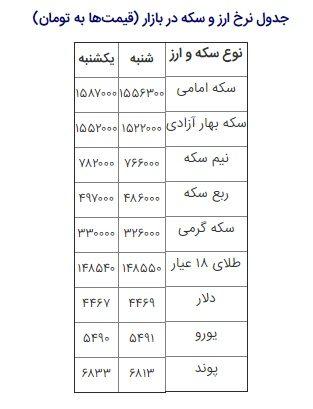 جدول نرخ ارز و سکه در بازار (قیمت‌ها به تومان)
نوع سکه و ارز شنبه یکشنبه
سکه امامی ۱۵۵۶۳۰۰ ۱۵۸۷۰۰۰
سکه بهار آزادی ۱۵۲۲۰۰۰ ۱۵۵۲۰۰۰
نیم سکه ۷۶۶۰۰۰ ۷۸۲۰۰۰
ربع سکه ۴۸۶۰۰۰ ۴۹۷۰۰۰
سکه گرمی ۳۲۶۰۰۰ ۳۳۰۰۰۰
طلای ۱۸ عیار ۱۴۸۵۵۰ ۱۴۸۵۴۰
دلار ۴۴۶۹ ۴۴۶۷
یورو ۵۴۹۱ ۵۴۹۰
پوند ۶۸۱۳ ۶۸۳۳